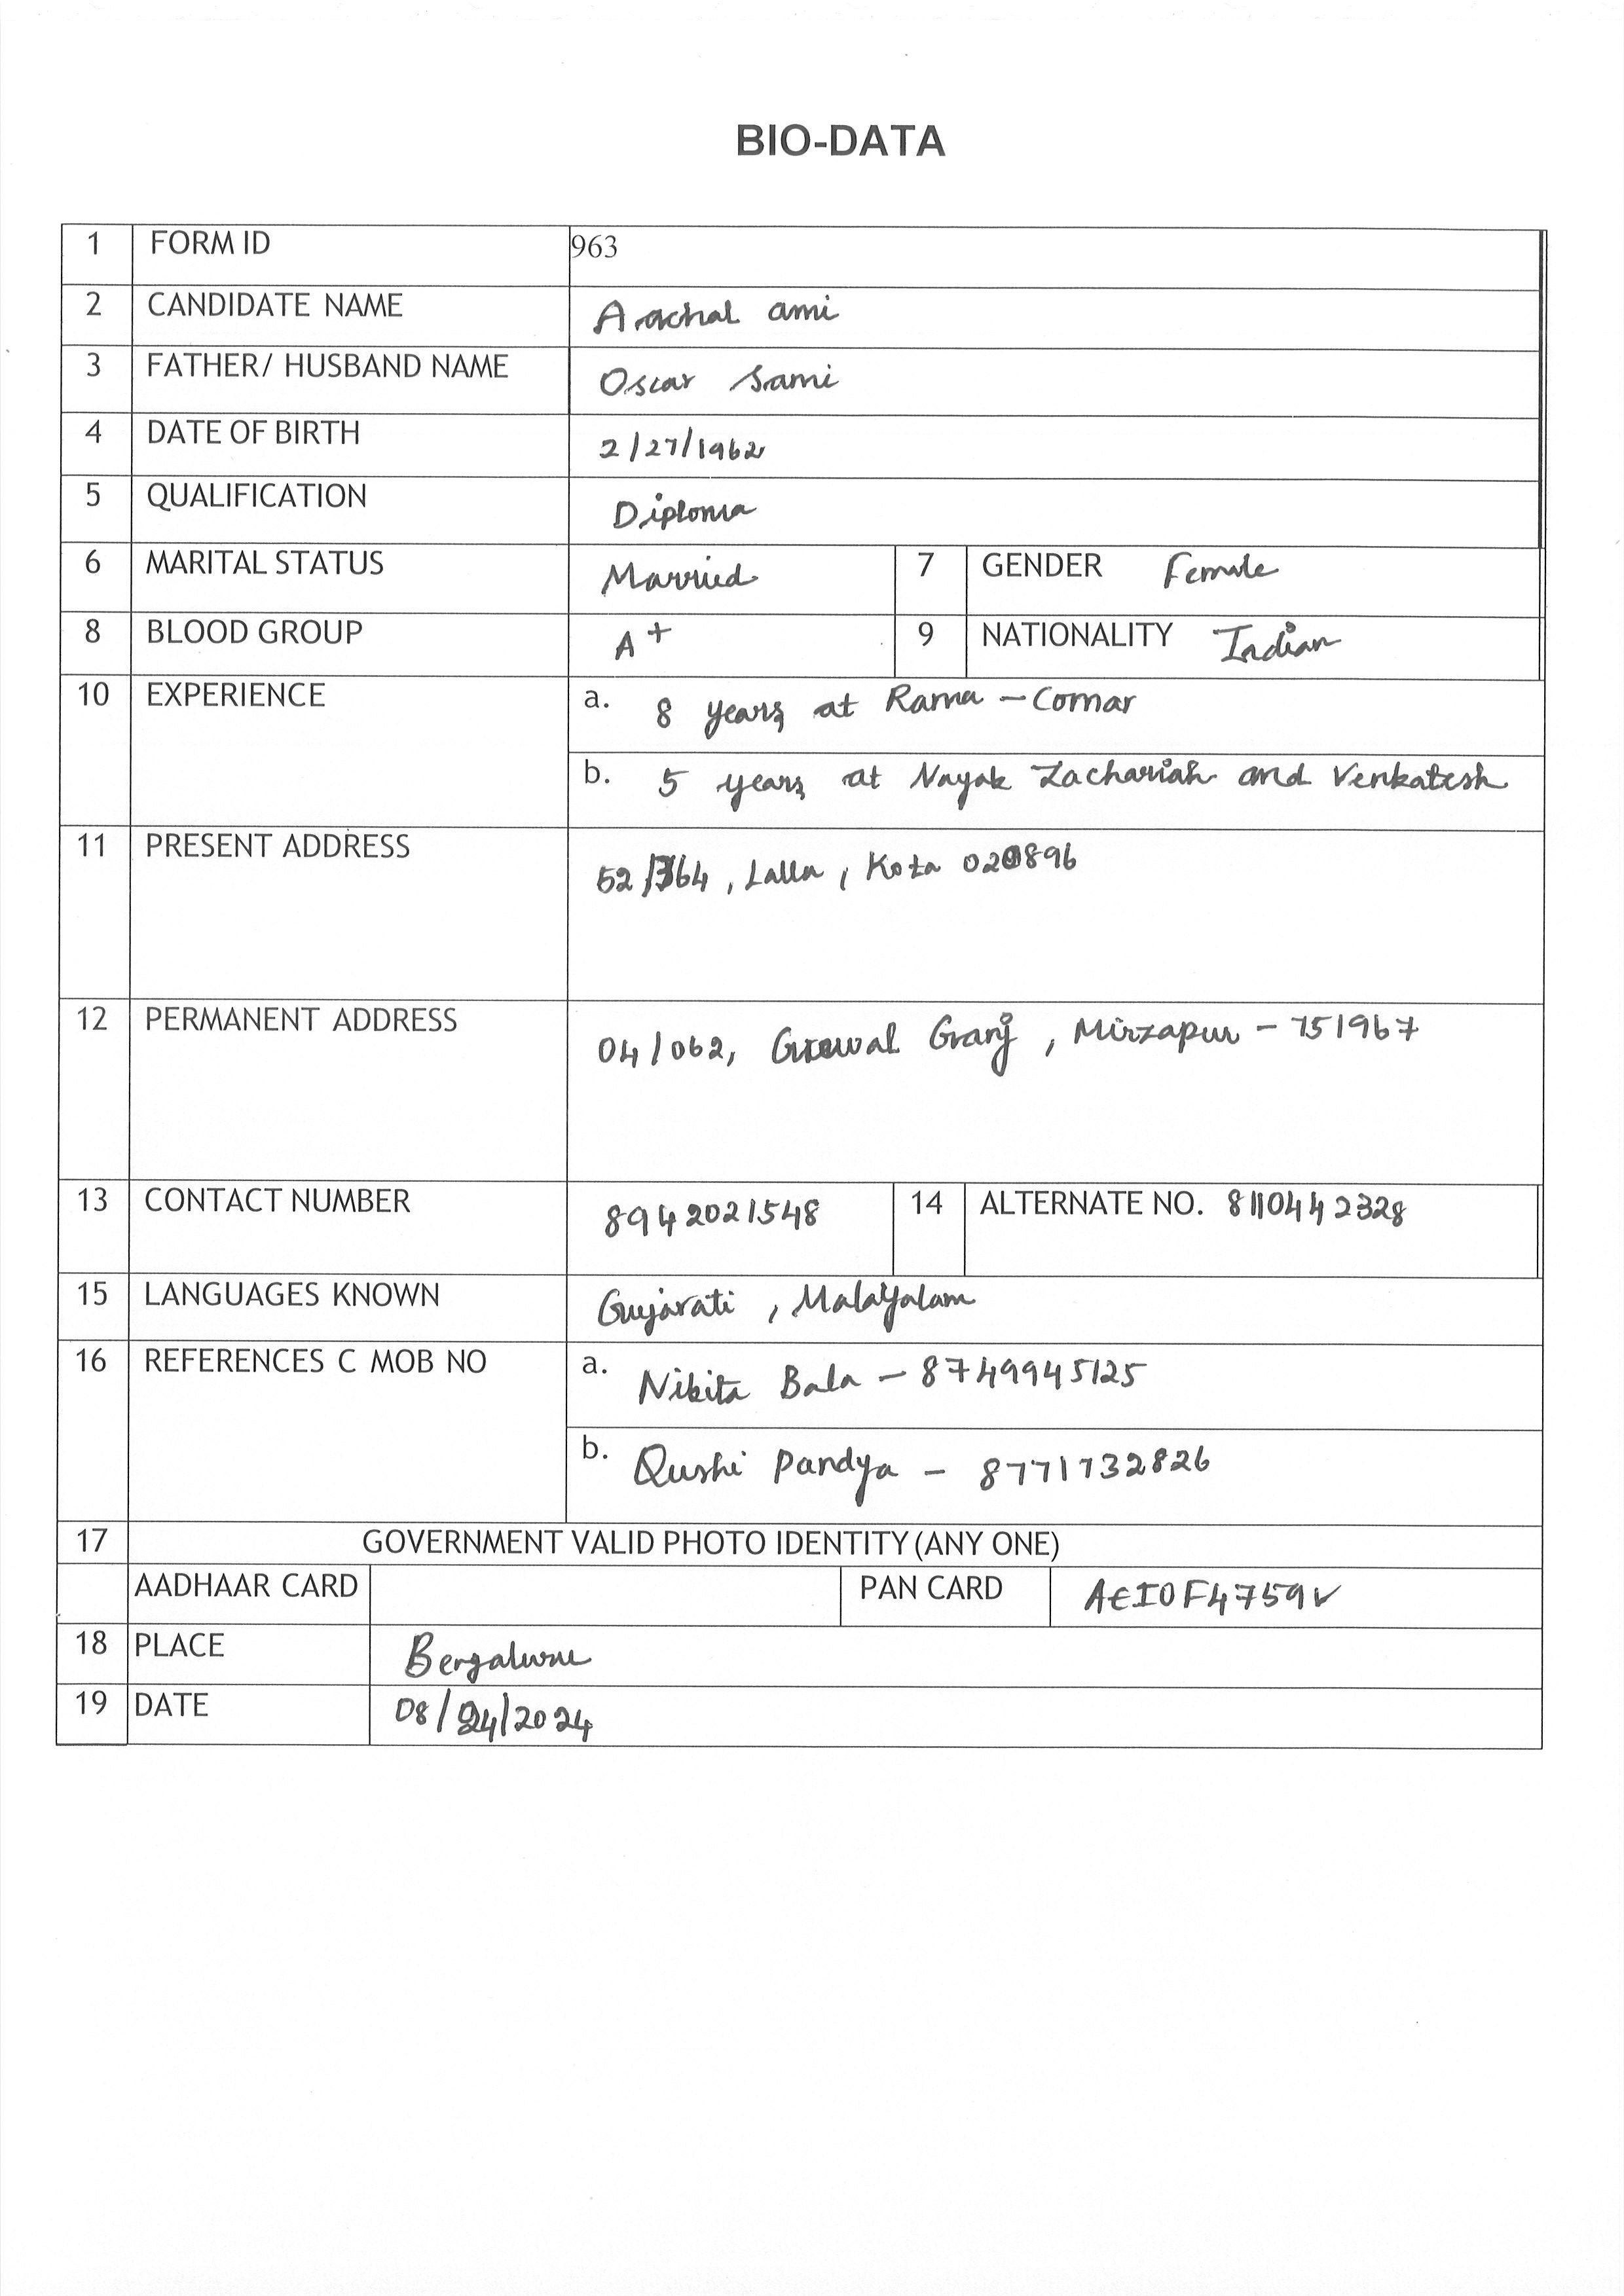 BIO-DATA
1 FORM ID 963
2 CANDIDATE NAME ami
3 FATHER/ HUSBAND NAME Oscar Sami
4 DATE OF BIRTH 2/27/1962
5 QUALIFICATION Diploma
6 MARITAL STATUS Married 7 GENDER Female
8 BLOOD GROUP A+ 9 NATIONALITY Indian
10 EXPERIENCE a. 8 years at Rama - Comar
b. 5 years at Nayak Zachariah and Venkatesh
11 PRESENT ADDRESS 52/364, Lalla, Kota 020896
12 PERMANENT ADDRESS 04/062, Ganj, Mirzapur - 751967
13 CONTACT NUMBER 8942021548 14 ALTERNATE NO. 8110442328
15 LANGUAGES KNOWN Gujarati, Malayalam
16 REFERENCES C MOB NO a. Nikita Bala - 8749945125
b. Qushi Pandya - 8771732826
17 GOVERNMENT VALID PHOTO IDENTITY (ANY ONE)
AADHAAR CARD PAN CARD AEIOF4759V
18 PLACE
19 DATE 08/24/2024